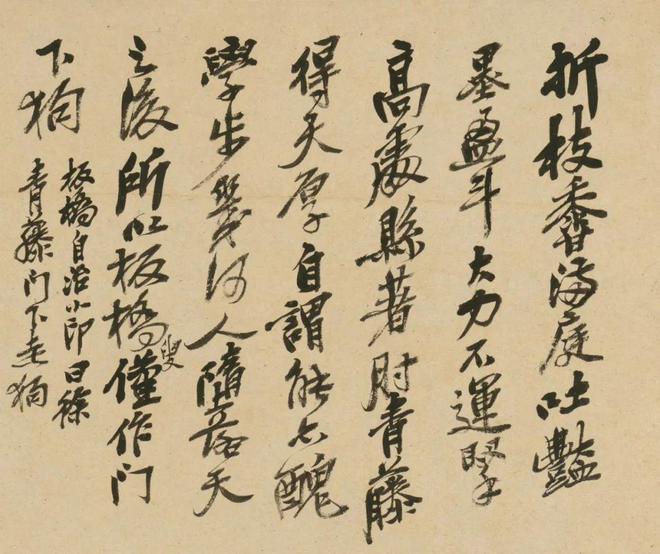 折枝香滿庭吐豔
墨盈斗大力不運掔
高處縣著肘青藤
得天厚自謂能亡醜
學步幾何人隨落天
之後所以板橋叟僅作门
下狗
板橋自治小印曰徐
青藤门下走狗